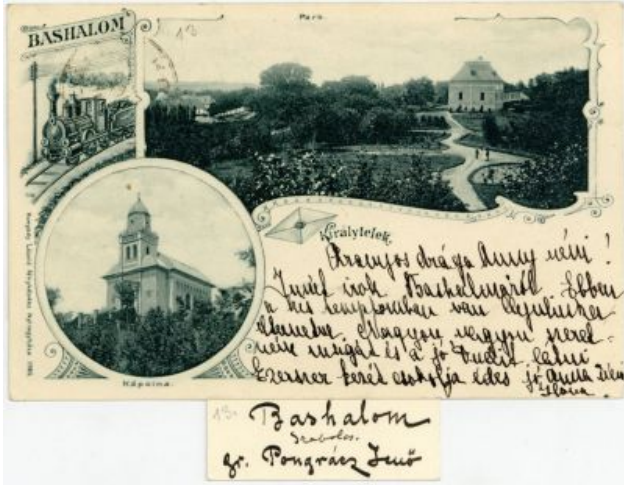 BASHALOM
Park.
13
Királytelek.
Kápolna.
Aranyos drága Anny néni!
Innét írok Bashalmáról. Ebben
a kis templomban van
eltemetve. Nagyon vagyon szeret-
ném magát és a jó látni
Ezerszer kezét csókolja édes jó Anna
Ilona.
13.
Bashalom
Szabolcs.
gr. Pongrácz Jenő